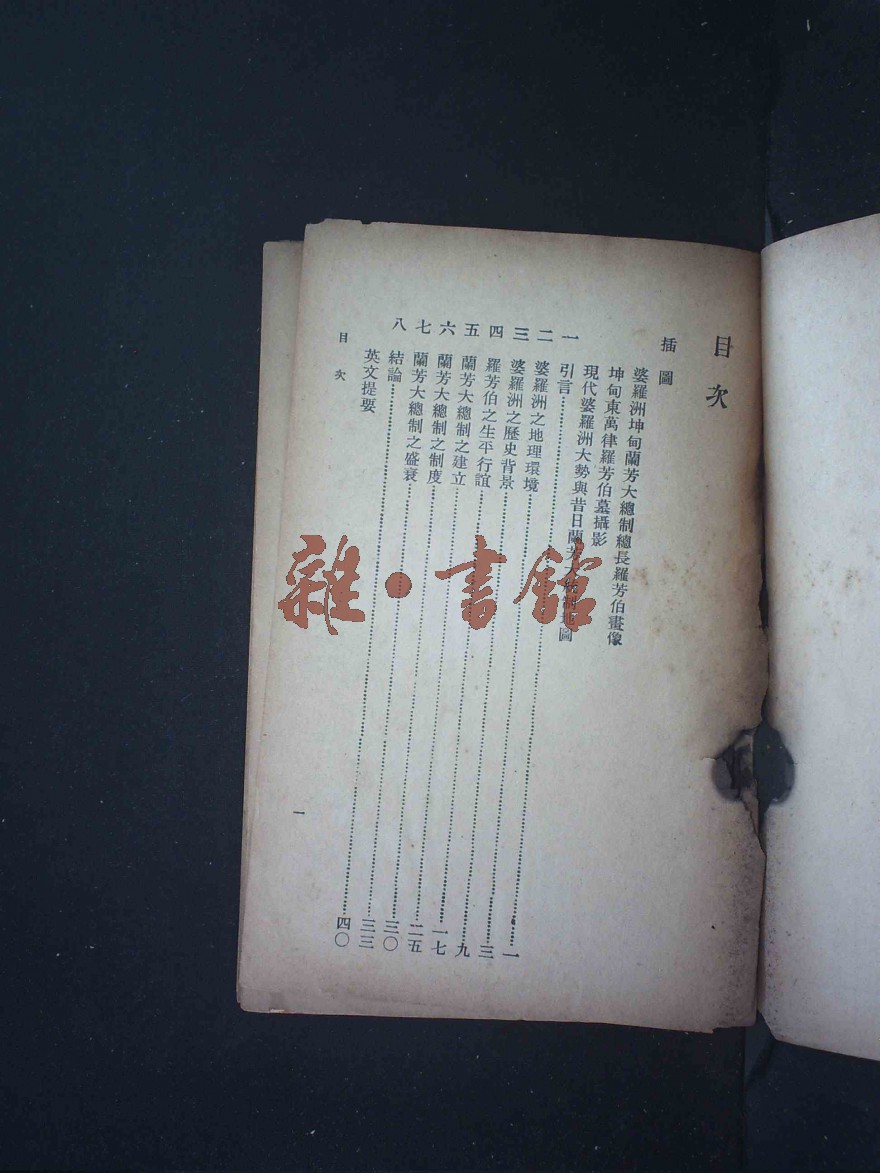 目次
插圖
婆羅洲坤甸蘭芳大總制總長羅芳伯畫像
坤甸東萬律羅芳伯墓攝影
現代婆羅洲大勢與昔日蘭芳大總制地圖
一 引言……一
二 婆羅洲之地理環境……三
三 婆羅洲之歷史背景……九
四 羅芳伯之生平行誼……一七
五 蘭芳大總制之建立……二五
六 蘭芳大總制之制度……三〇
七 蘭芳大總制之盛衰……三三
八 結論……四〇
英文提要
目次
一
雜·書館